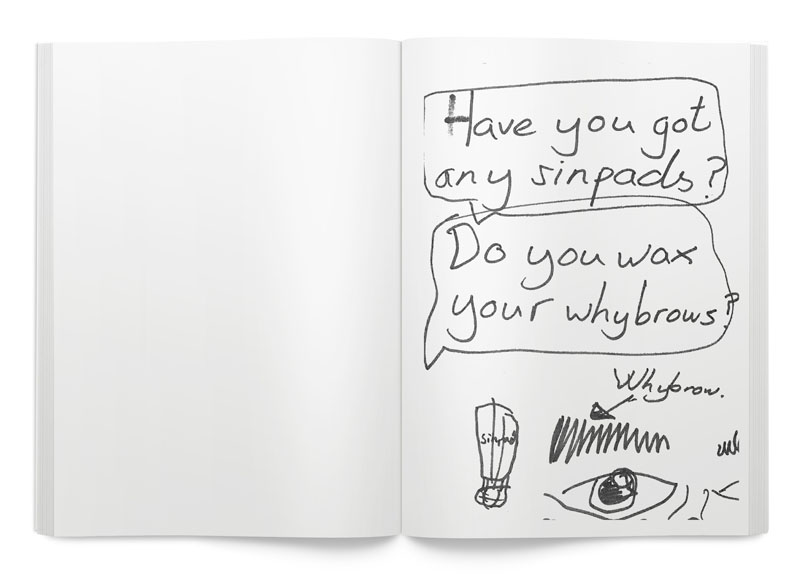 Have you got
any sinpads?
Do you wax
your whybrows?
Whybrow.
sinpad